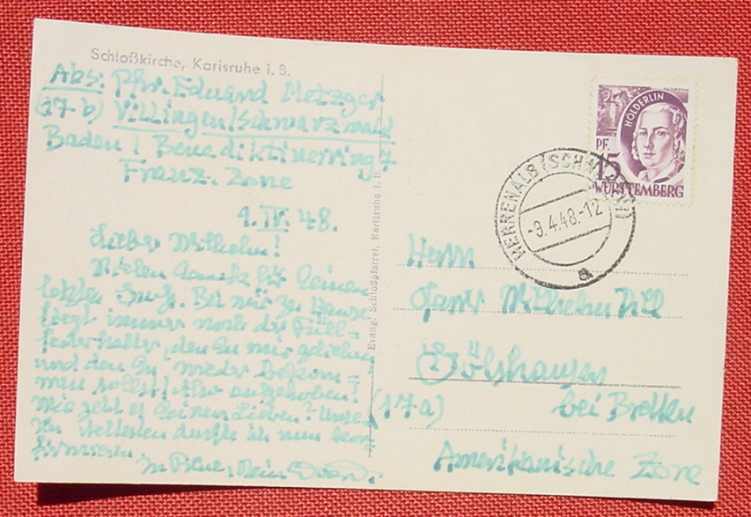 Schloßkirche, Karlsruhe i. B.
Abs: Pfr. Eduard Metzger
(17b) Villingen/Schwarzwald
Baden / Benediktinerring 7
Franz. Zone
9. IV. 48.
Lieber Wilhelm!
Vielen Dank für Deinen
letzten Bei mir zu Hause
liegt immer noch der Füll-
federhalter, den Du mir
und den Du wieder bekom-
men sollst! Also aufgehoben!
Wie geht es Deinen Lieben? Unsere
durfte ich nun kon-
firmieren.
In Treue, Dein
Evang. Schloßpfarrei, Karlsruhe i. B.
HÖLDERLIN
PF. 15
WÜRTTEMBERG
HERRENALB (SCHWARZW)
-9.4.48.-12
a
Herrn
Wilhelm
bei Bretten
(17a)
Amerikanische Zone